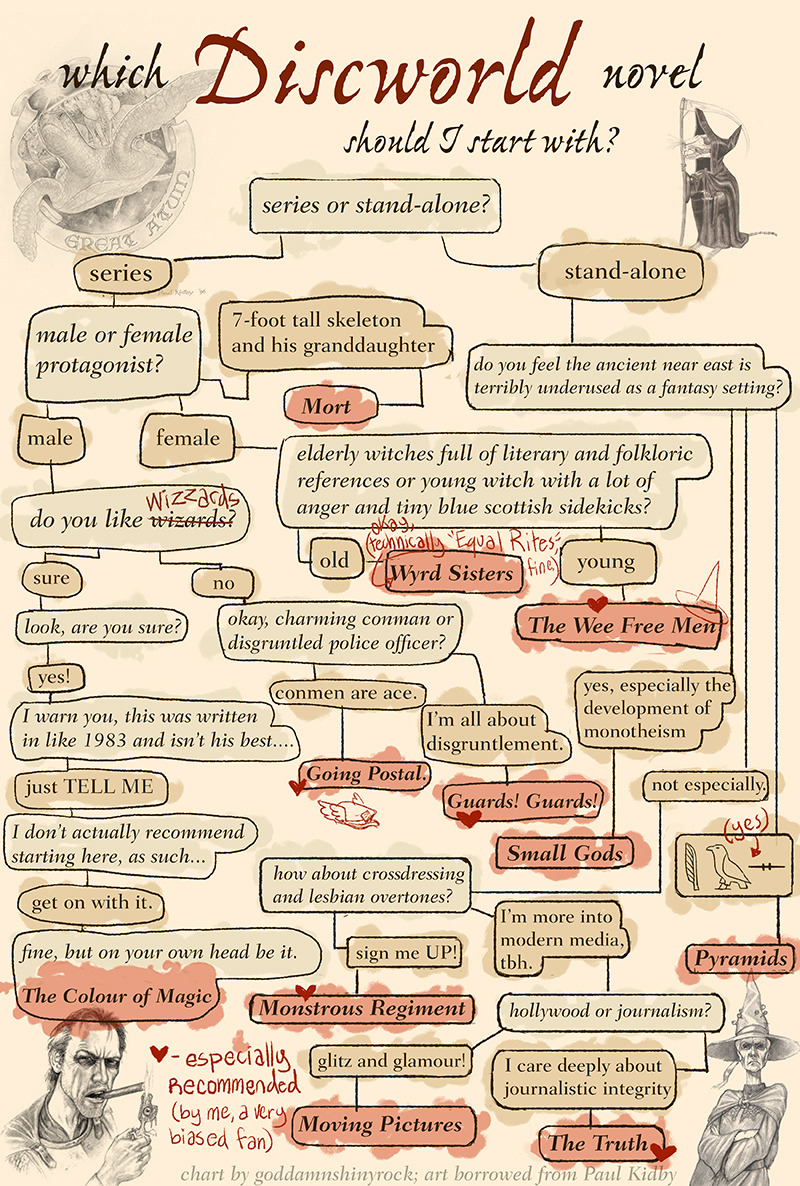 which Discworld novel
should I start with?
GREAT A'TUIN
series or stand-alone?
series
stand-alone
male or female
protagonist?
7-foot tall skeleton
and his granddaughter
Mort
do you feel the ancient near east is
terribly underused as a fantasy setting?
male
female
elderly witches full of literary and folkloric
references or young witch with a lot of
anger and tiny blue scottish sidekicks?
wizzards
do you like wizards?
old
okay,
(technically 'Equal Rites',
fine)
Wyrd Sisters
young
The Wee Free Men
sure
no
look, are you sure?
okay, charming conman or
disgruntled police officer?
yes!
conmen are ace.
yes, especially the
development of
monotheism
I warn you, this was written
in like 1983 and isn't his best....
I'm all about
disgruntlement.
just TELL ME
Going Postal.
Guards! Guards!
not especially.
I don't actually recommend
starting here, as such...
Small Gods
(yes)
how about crossdressing
and lesbian overtones?
get on with it.
I'm more into
modern media,
tbh.
fine, but on your own head be it.
sign me UP!
Pyramids
The Colour of Magic
Monstrous Regiment
hollywood or journalism?
- especially
recommended
(by me, a very
biased fan)
glitz and glamour!
I care deeply about
journalistic integrity
Moving Pictures
The Truth
chart by goddamnshinyrock; art borrowed from Paul Kidby